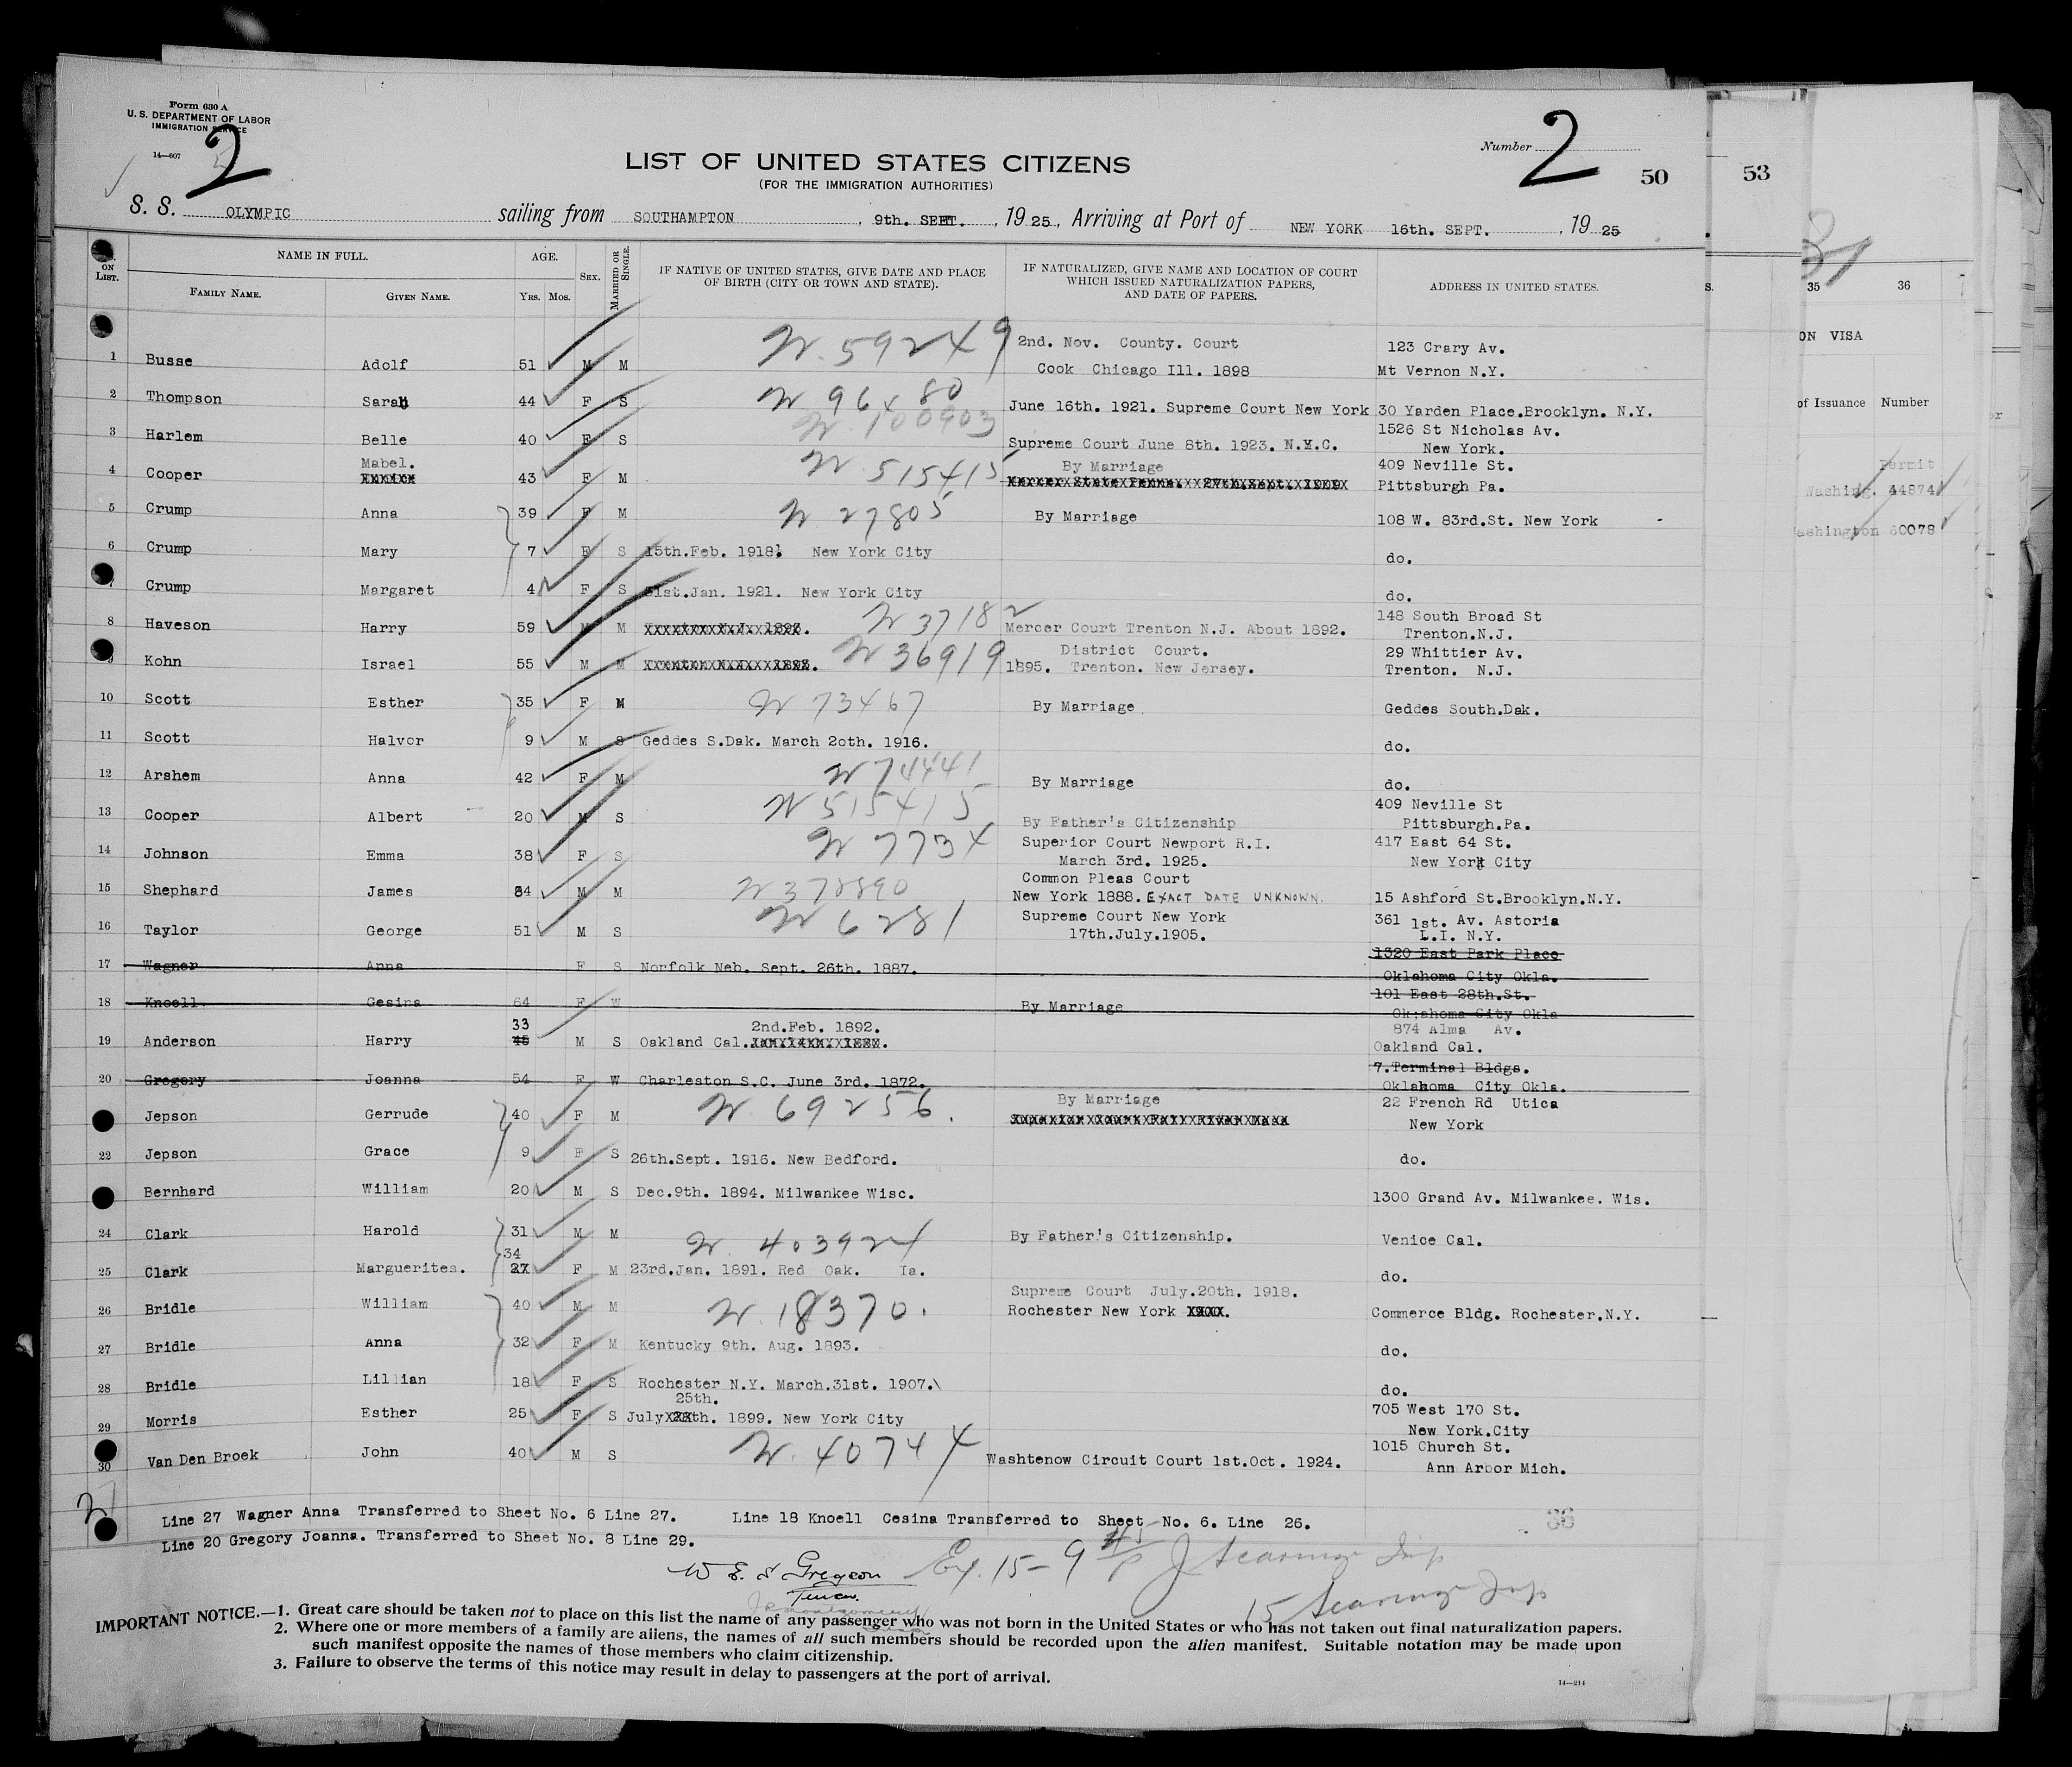 Form 630 A
U. S. DEPARTMENT OF LABOR
IMMIGRATION SERVICE
14—607
2
LIST OF UNITED STATES CITIZENS
(FOR THE IMMIGRATION AUTHORITIES)
Number 2
50
53
S. S. OLYMPIC sailing from SOUTHAMPTON, 9th. SEPT., 1925, Arriving at Port of NEW YORK 16th. SEPT., 1925
ON LIST. NAME IN FULL. AGE. SEX. MARRIED OR SINGLE. IF NATIVE OF UNITED STATES, GIVE DATE AND PLACE OF BIRTH (CITY OR TOWN AND STATE). IF NATURALIZED, GIVE NAME AND LOCATION OF COURT WHICH ISSUED NATURALIZATION PAPERS, AND DATE OF PAPERS. ADDRESS IN UNITED STATES.
FAMILY NAME. GIVEN NAME. YRS. MOS.
35 36
ON VISA
of Issuance Number
Permit
Washing. 44874
ashington 60078
1 Busse Adolf 51 M M W. 59249 2nd. Nov. County. Court Cook Chicago Ill. 1898 123 Crary Av. Mt Vernon N.Y.
2 Thompson Sarah 44 F S W 96480 June 16th. 1921. Supreme Court New York 30 Yarden Place.Brooklyn. N.Y.
3 Harlem Belle 40 F S W. 100903 Supreme Court June 8th. 1923. N.Y.C. 1526 St Nicholas Av. New York.
4 Cooper Mabel. 43 F M W 515415 By Marriage 409 Neville St. Pittsburgh Pa.
5 Crump Anna 39 F M W. 27805 By Marriage 108 W. 83rd.St. New York
6 Crump Mary 7 F S 15th.Feb. 1918. New York City do.
7 Crump Margaret 4 F S 31st.Jan. 1921. New York City do.
8 Haveson Harry 59 M M W 37182 Mercer Court Trenton N.J. About 1892. 148 South Broad St Trenton.N.J.
9 Kohn Israel 55 M M W 36919 District Court. 1895. Trenton. New Jersey. 29 Whittier Av. Trenton. N.J.
10 Scott Esther 35 F M W 73467 By Marriage Geddes South.Dak.
11 Scott Halvor 9 M S Geddes S.Dak. March 20th. 1916. do.
12 Arshem Anna 42 F M W 74441 By Marriage do.
13 Cooper Albert 20 M S W 515415 By Father's Citizenship 409 Neville St Pittsburgh.Pa.
14 Johnson Emma 38 F S W 7734 Superior Court Newport R.I. March 3rd. 1925. 417 East 64 St. New York City
15 Shephard James 64 M M W 378890 Common Pleas Court New York 1888. EXACT DATE UNKNOWN. 15 Ashford St.Brooklyn.N.Y.
16 Taylor George 51 M S W 6281 Supreme Court New York 17th.July.1905. 361 1st. Av. Astoria L.I. N.Y.
17 Wagner Anna F S Norfolk Neb. Sept. 26th. 1887. 1320 East Park Place Oklahoma City Okla.
18 Knoell Gesina 64 F W By Marriage 101 East 28th.St. Oklahoma City Okla
19 Anderson Harry 33 M S Oakland Cal. 2nd.Feb. 1892. 874 Alma Av. Oakland Cal.
20 Gregory Joanna 54 F W Charleston S.C. June 3rd. 1872. 7.Terminal Bldgs. Oklahoma City Okla.
Jepson Gerrude 40 F M W. 69256. By Marriage 22 French Rd Utica New York
22 Jepson Grace 9 F S 26th.Sept. 1916. New Bedford. do.
Bernhard William 20 M S Dec.9th. 1894. Milwankee Wisc. 1300 Grand Av. Milwankee. Wis.
24 Clark Harold 31 M M W. 403924 By Father's Citizenship. Venice Cal.
25 Clark Marguerites. 34 F M 23rd.Jan. 1891. Red Oak. Ia. do.
26 Bridle William 40 M M W. 18370. Supreme Court July.20th. 1918. Rochester New York Commerce Bldg. Rochester.N.Y.
27 Bridle Anna 32 F M Kentucky 9th. Aug. 1893. do.
28 Bridle Lillian 18 F S Rochester N.Y. March.31st. 1907. do.
29 Morris Esther 25 F S July 25th. 1899. New York City 705 West 170 St. New York.City
30 Van Den Broek John 40 M S W. 40744 Washtenow Circuit Court 1st.Oct. 1924. 1015 Church St. Ann Arbor Mich.
Line 27 Wagner Anna Transferred to Sheet No. 6 Line 27. Line 18 Knoell Cesina Transferred to Sheet No. 6. Line 26.
Line 20 Gregory Joanna. Transferred to Sheet No. 8 Line 29.
36
IMPORTANT NOTICE.—1. Great care should be taken not to place on this list the name of any passenger who was not born in the United States or who has not taken out final naturalization papers.
2. Where one or more members of a family are aliens, the names of all such members should be recorded upon the alien manifest. Suitable notation may be made upon
such manifest opposite the names of those members who claim citizenship.
3. Failure to observe the terms of this notice may result in delay to passengers at the port of arrival.
14—214